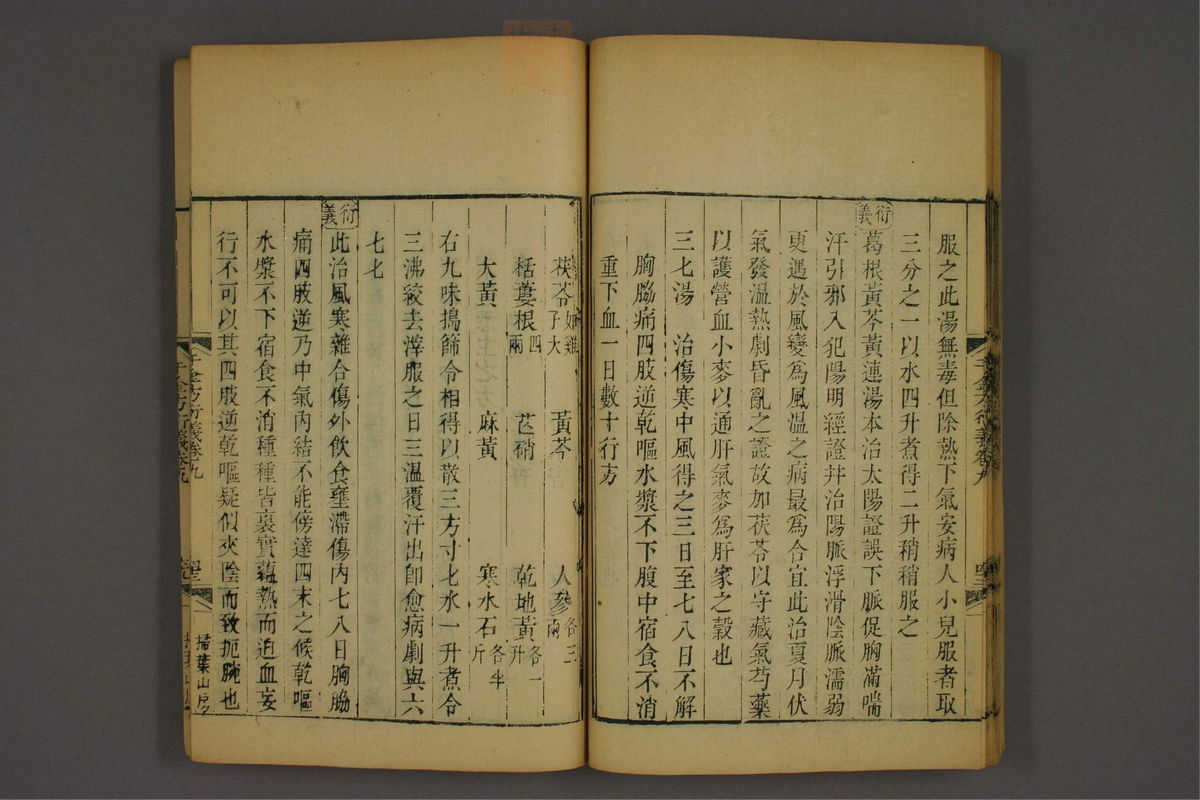 服之此湯無毒但除熱下氣安病人小兒服者取
三分之一以水四升煮得二升稍稍服之
衍義
葛根黃芩黃連湯本治太陽證誤下脈促胸滿喘
汗引邪入犯陽明經證幷治陽脈浮滑陰脈濡弱
更遇於風變爲風溫之病最爲合宜此治夏月伏
氣發溫熱劇昏亂之證故加茯苓以守藏氣芍藥
以護營血小麥以通肝氣麥爲肝家之穀也
三七湯 治傷寒中風得之三日至七八日不解
胸脇痛四肢逆乾嘔水漿不下腹中宿食不消
重下血一日數十行方
茯苓如雞子大 黃芩 人參各三兩
栝蔞根四兩 芒硝 乾地黃各一升
大黃 麻黃 寒水石各半斤
右九味搗篩令相得以散三方寸七水一升煮合
三沸絞去滓服之日三溫覆汗出卽愈病劇與六
七七
衍義
此治風寒雜合傷外飲食壅滯傷內七八日胸脇
痛四肢逆乃中氣內結不能傍達四末之候乾嘔
水漿不下宿食不消種種皆裏實蘊熱而迫血妄
行不可以其四肢逆乾嘔疑似夾陰而致扼腕也
千金方衍義卷九
掃葉山房